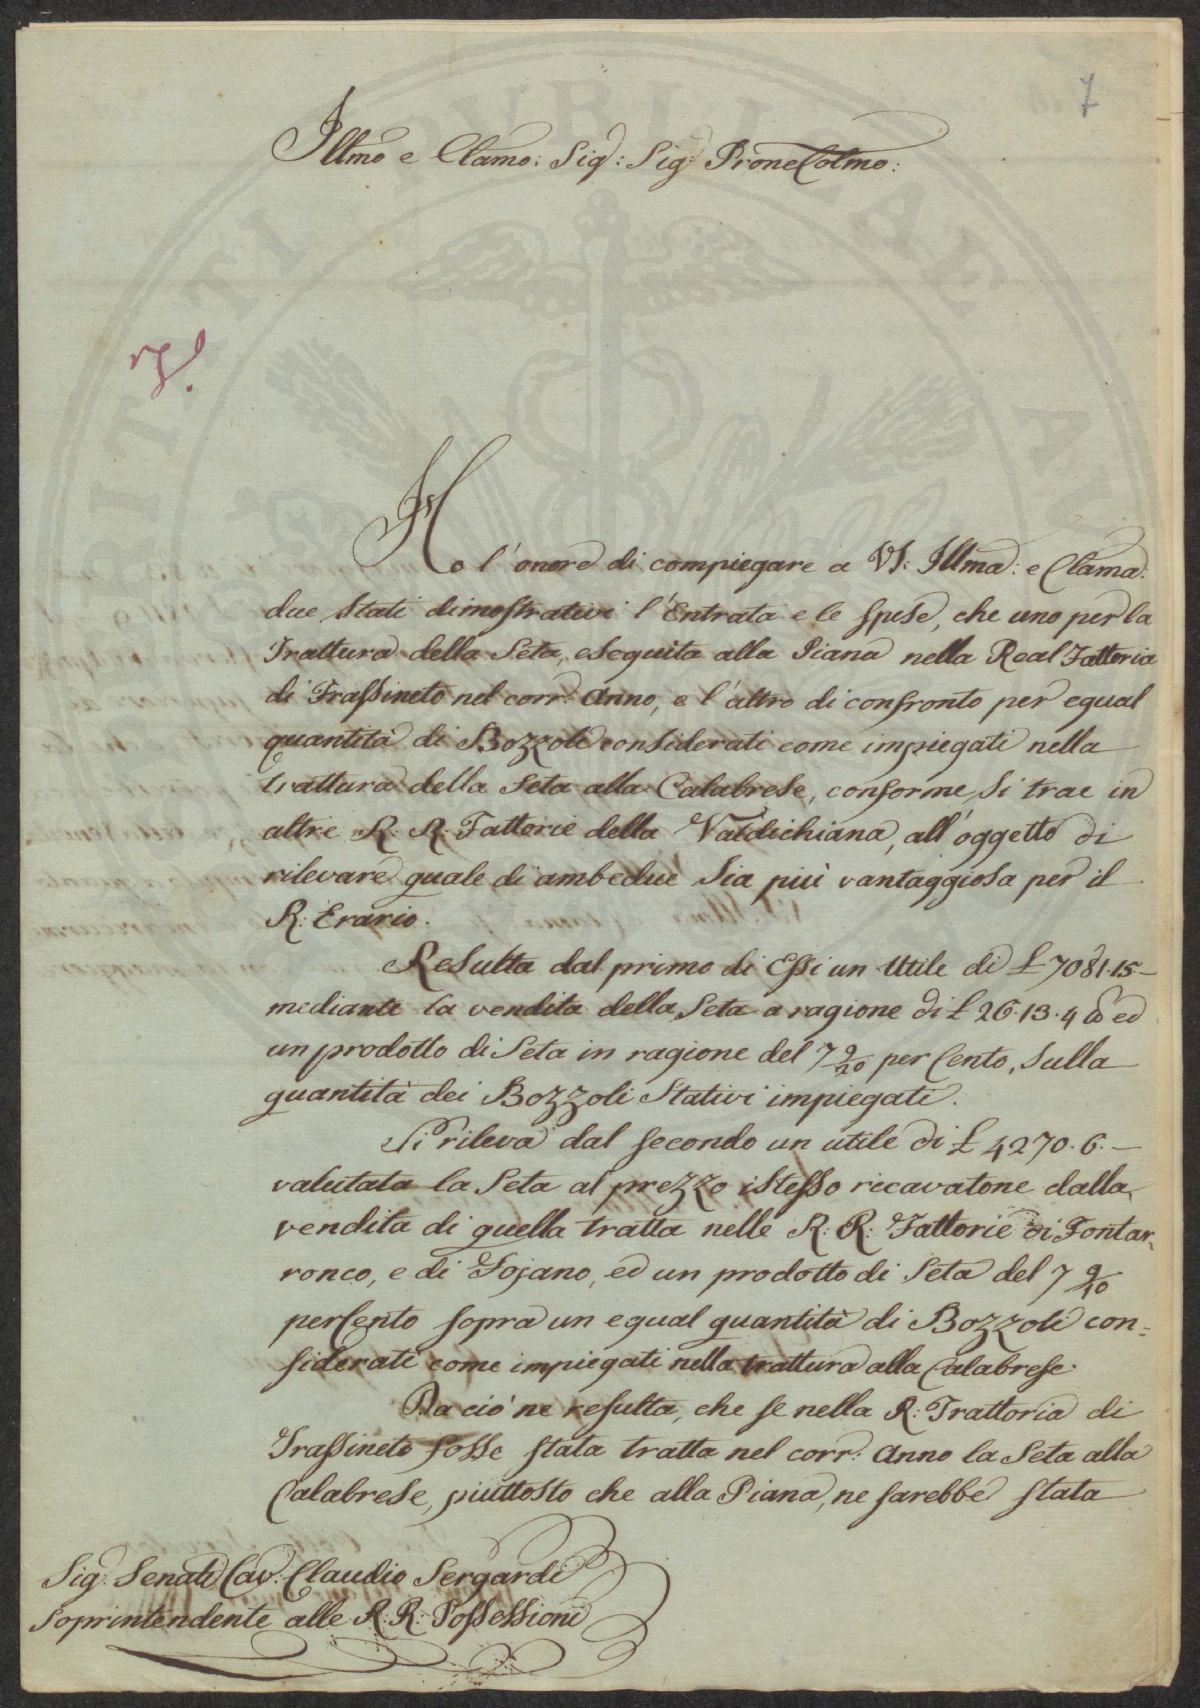 7
Illmo e Clamo: Sig: Sig: Prone Colmo:
7.
Ho l'onore di compiegare a VS: Illma: e Clama:
due Stati dimostrativi l'Entrata e le spese, che uno per la
Trattura della Seta, eseguita alla Piana nella Real Fattoria
di Frassineto nel corr: Anno, e l'altro di confronto per egual
quantità di Bozzoli considerati come impiegati nella
trattura della Seta alla Calabrese, conforme si trae in
altre R: R: Fattorie della Valdichiana, all'oggetto di
rilevare quale di ambedue sia più vantaggiosa per il
R: Erario.
Resulta dal primo di Essi un Utile di £ 7081.15 –
mediante la vendita della Seta a ragione di £ 26.13.4 ed
un prodotto di Seta in ragione del 7 9/20 per Cento, sulla
quantità dei Bozzoli Stativi impiegati.
Si rileva dal secondo un utile di £ 4270.6. –
valutata la Seta al prezzo istesso ricavatone dalla
vendita di quella tratta nelle R: R: Fattorie di Fontar-
ronco, e di Fojano, ed un prodotto di Seta del 7 9/10
per Cento sopra un egual quantità di Bozzoli con=
siderati come impiegati nella trattura alla Calabrese.
Da ciò ne resulta, che se nella R: Trattoria di
Frassineto fosse stata tratta nel corr: Anno la Seta alla
Calabrese, piuttosto che alla Piana, ne sarebbe stata
Sig: Senat: Cav: Claudio Sergardi
Soprintendente alle R: R: Possessioni